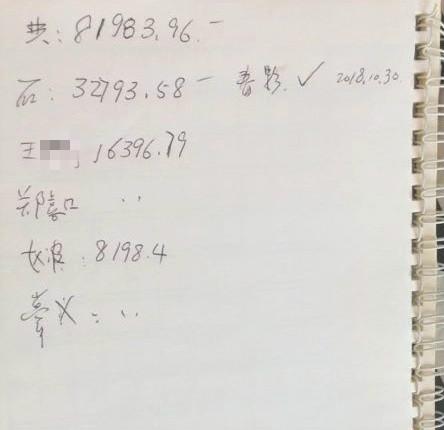 共: 81983.96.—
石: 32793.58 — ✓ 2018.10.30.
王 16396.79
郑 ··
: 8198.4
: ··